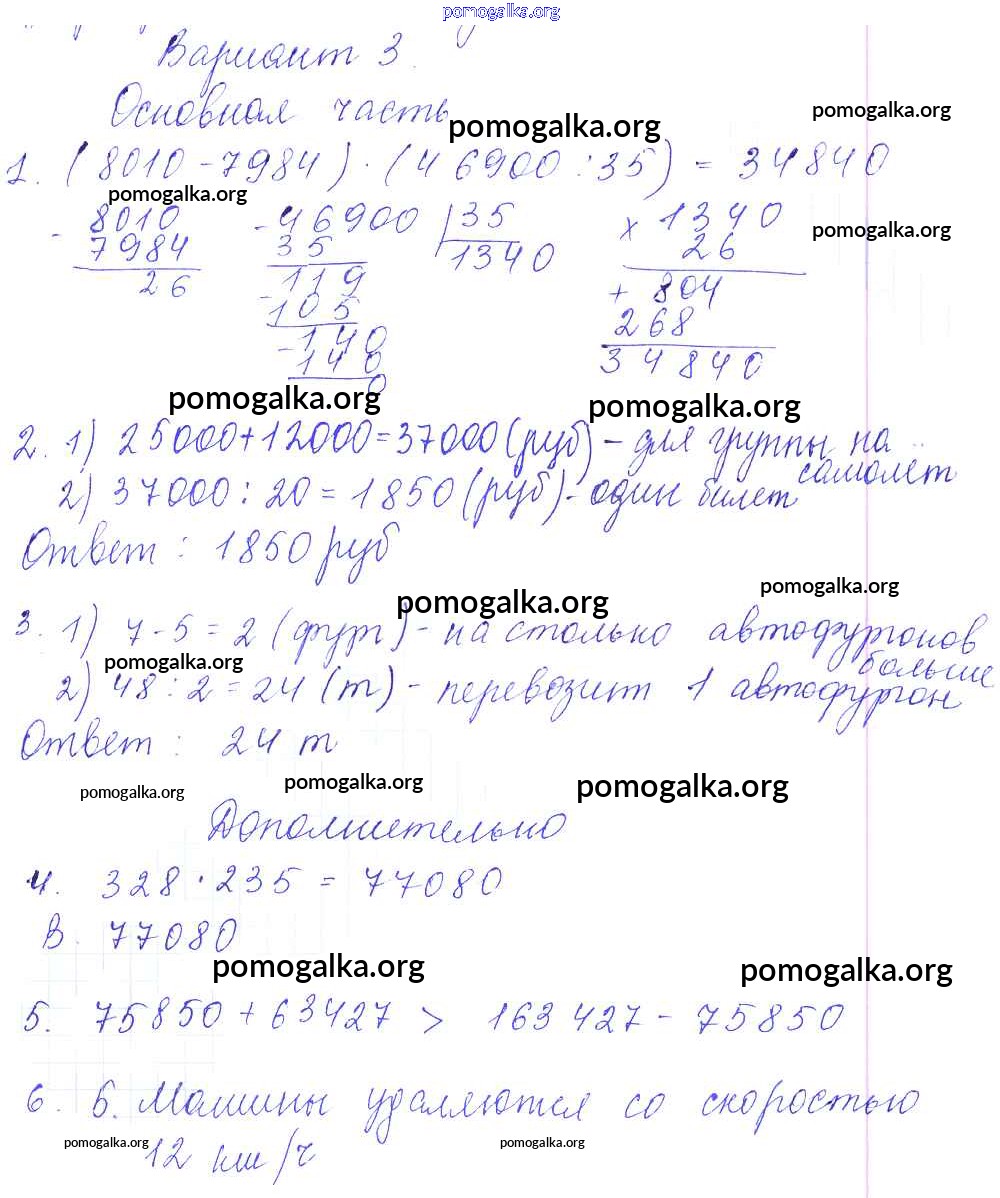 pomogalka.org
Вариант 3.
Основная часть
pomogalka.org
pomogalka.org
1. (8010 - 7984) · (46900 : 35) = 34840
pomogalka.org
- 8010 - 46900 | 35 × 1340
pomogalka.org
7984 35 1340 26
26 119 + 804
- 105 268
- 140 34840
140
0
pomogalka.org
pomogalka.org
2. 1) 25000 + 12000 = 37000 (руб) - для группы на самолет
2) 37000 : 20 = 1850 (руб) - один билет
Ответ : 1850 руб
pomogalka.org
pomogalka.org
3. 1) 7 - 5 = 2 (фург) - на столько автофургонов больше
pomogalka.org
2) 48 : 2 = 24 (т) - перевозит 1 автофургон
Ответ : 24 т
pomogalka.org
pomogalka.org
pomogalka.org
Дополнительно
4. 328 · 235 = 77080
В. 77080
pomogalka.org
pomogalka.org
5. 75850 + 63427 > 163427 - 75850
6. Б. Машины удаляются со скоростью
12 км/ч
pomogalka.org
pomogalka.org